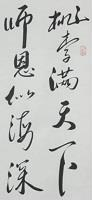 桃李满天下
师恩似海深